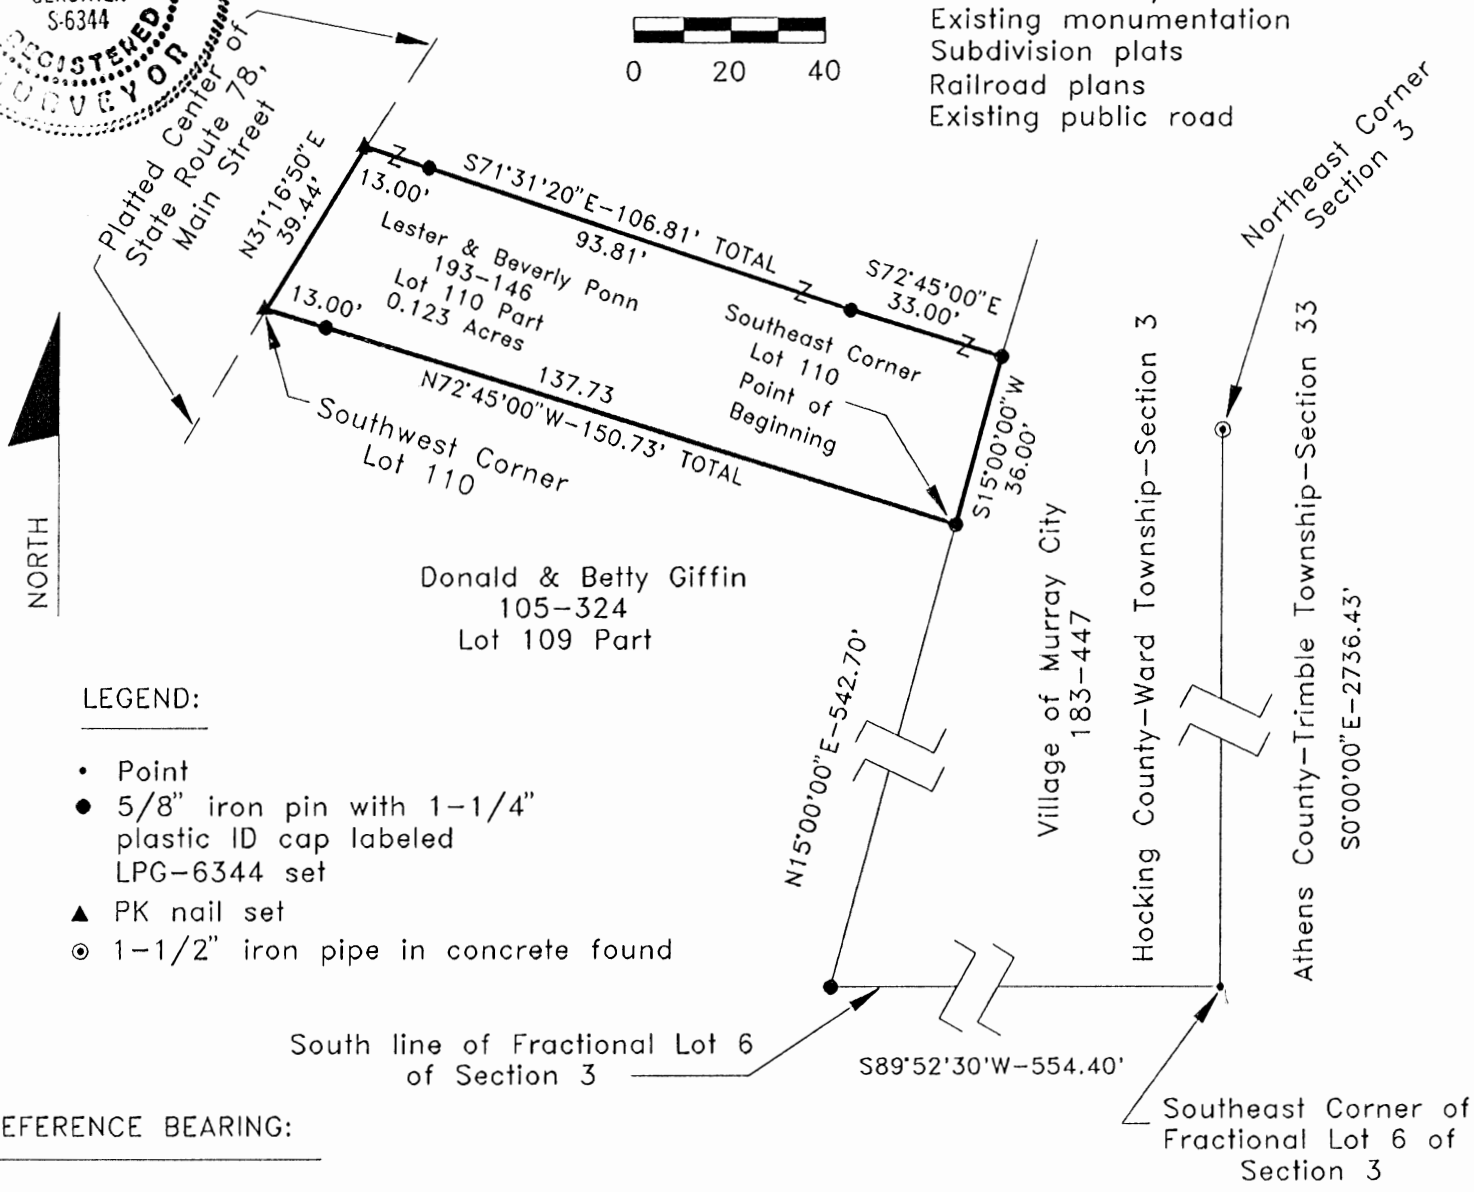 S-6344
REGISTERED
SURVEYOR
0 20 40
Existing monumentation
Subdivision plats
Railroad plans
Existing public road
Platted Center of
State Route 78,
Main Street
N31°16'50"E
39.44'
13.00'
S71°31'20"E-106.81' TOTAL
93.81'
Lester & Beverly Ponn
193-146
Lot 110 Part
0.123 Acres
S72°45'00"E
33.00'
Northeast Corner
Section 3
13.00'
137.73
N72°45'00"W-150.73' TOTAL
Southeast Corner
Lot 110
Point of
Beginning
S15°00'00"W
36.00'
Southwest Corner
Lot 110
NORTH
Donald & Betty Giffin
105-324
Lot 109 Part
N15°00'00"E-542.70'
Village of Murray City
183-447
Hocking County-Ward Township-Section 3
Athens County-Trimble Township-Section 33
S0°00'00"E-2736.43'
LEGEND:
Point
5/8" iron pin with 1-1/4"
plastic ID cap labeled
LPG-6344 set
PK nail set
1-1/2" iron pipe in concrete found
South line of Fractional Lot 6
of Section 3
S89°52'30'W-554.40'
Southeast Corner of
Fractional Lot 6 of
Section 3
EFERENCE BEARING: